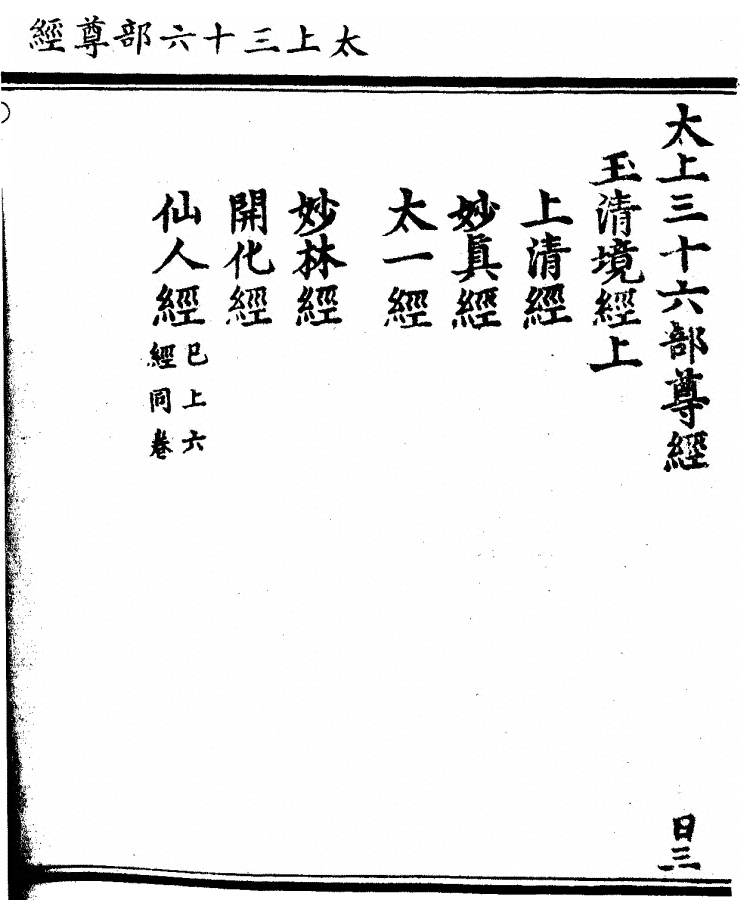 太上三十六部尊經
太上三十六部尊經
日三
玉清境經上
上清經
妙眞經
太一經
妙林經
開化經
仙人經
已上六
經同卷